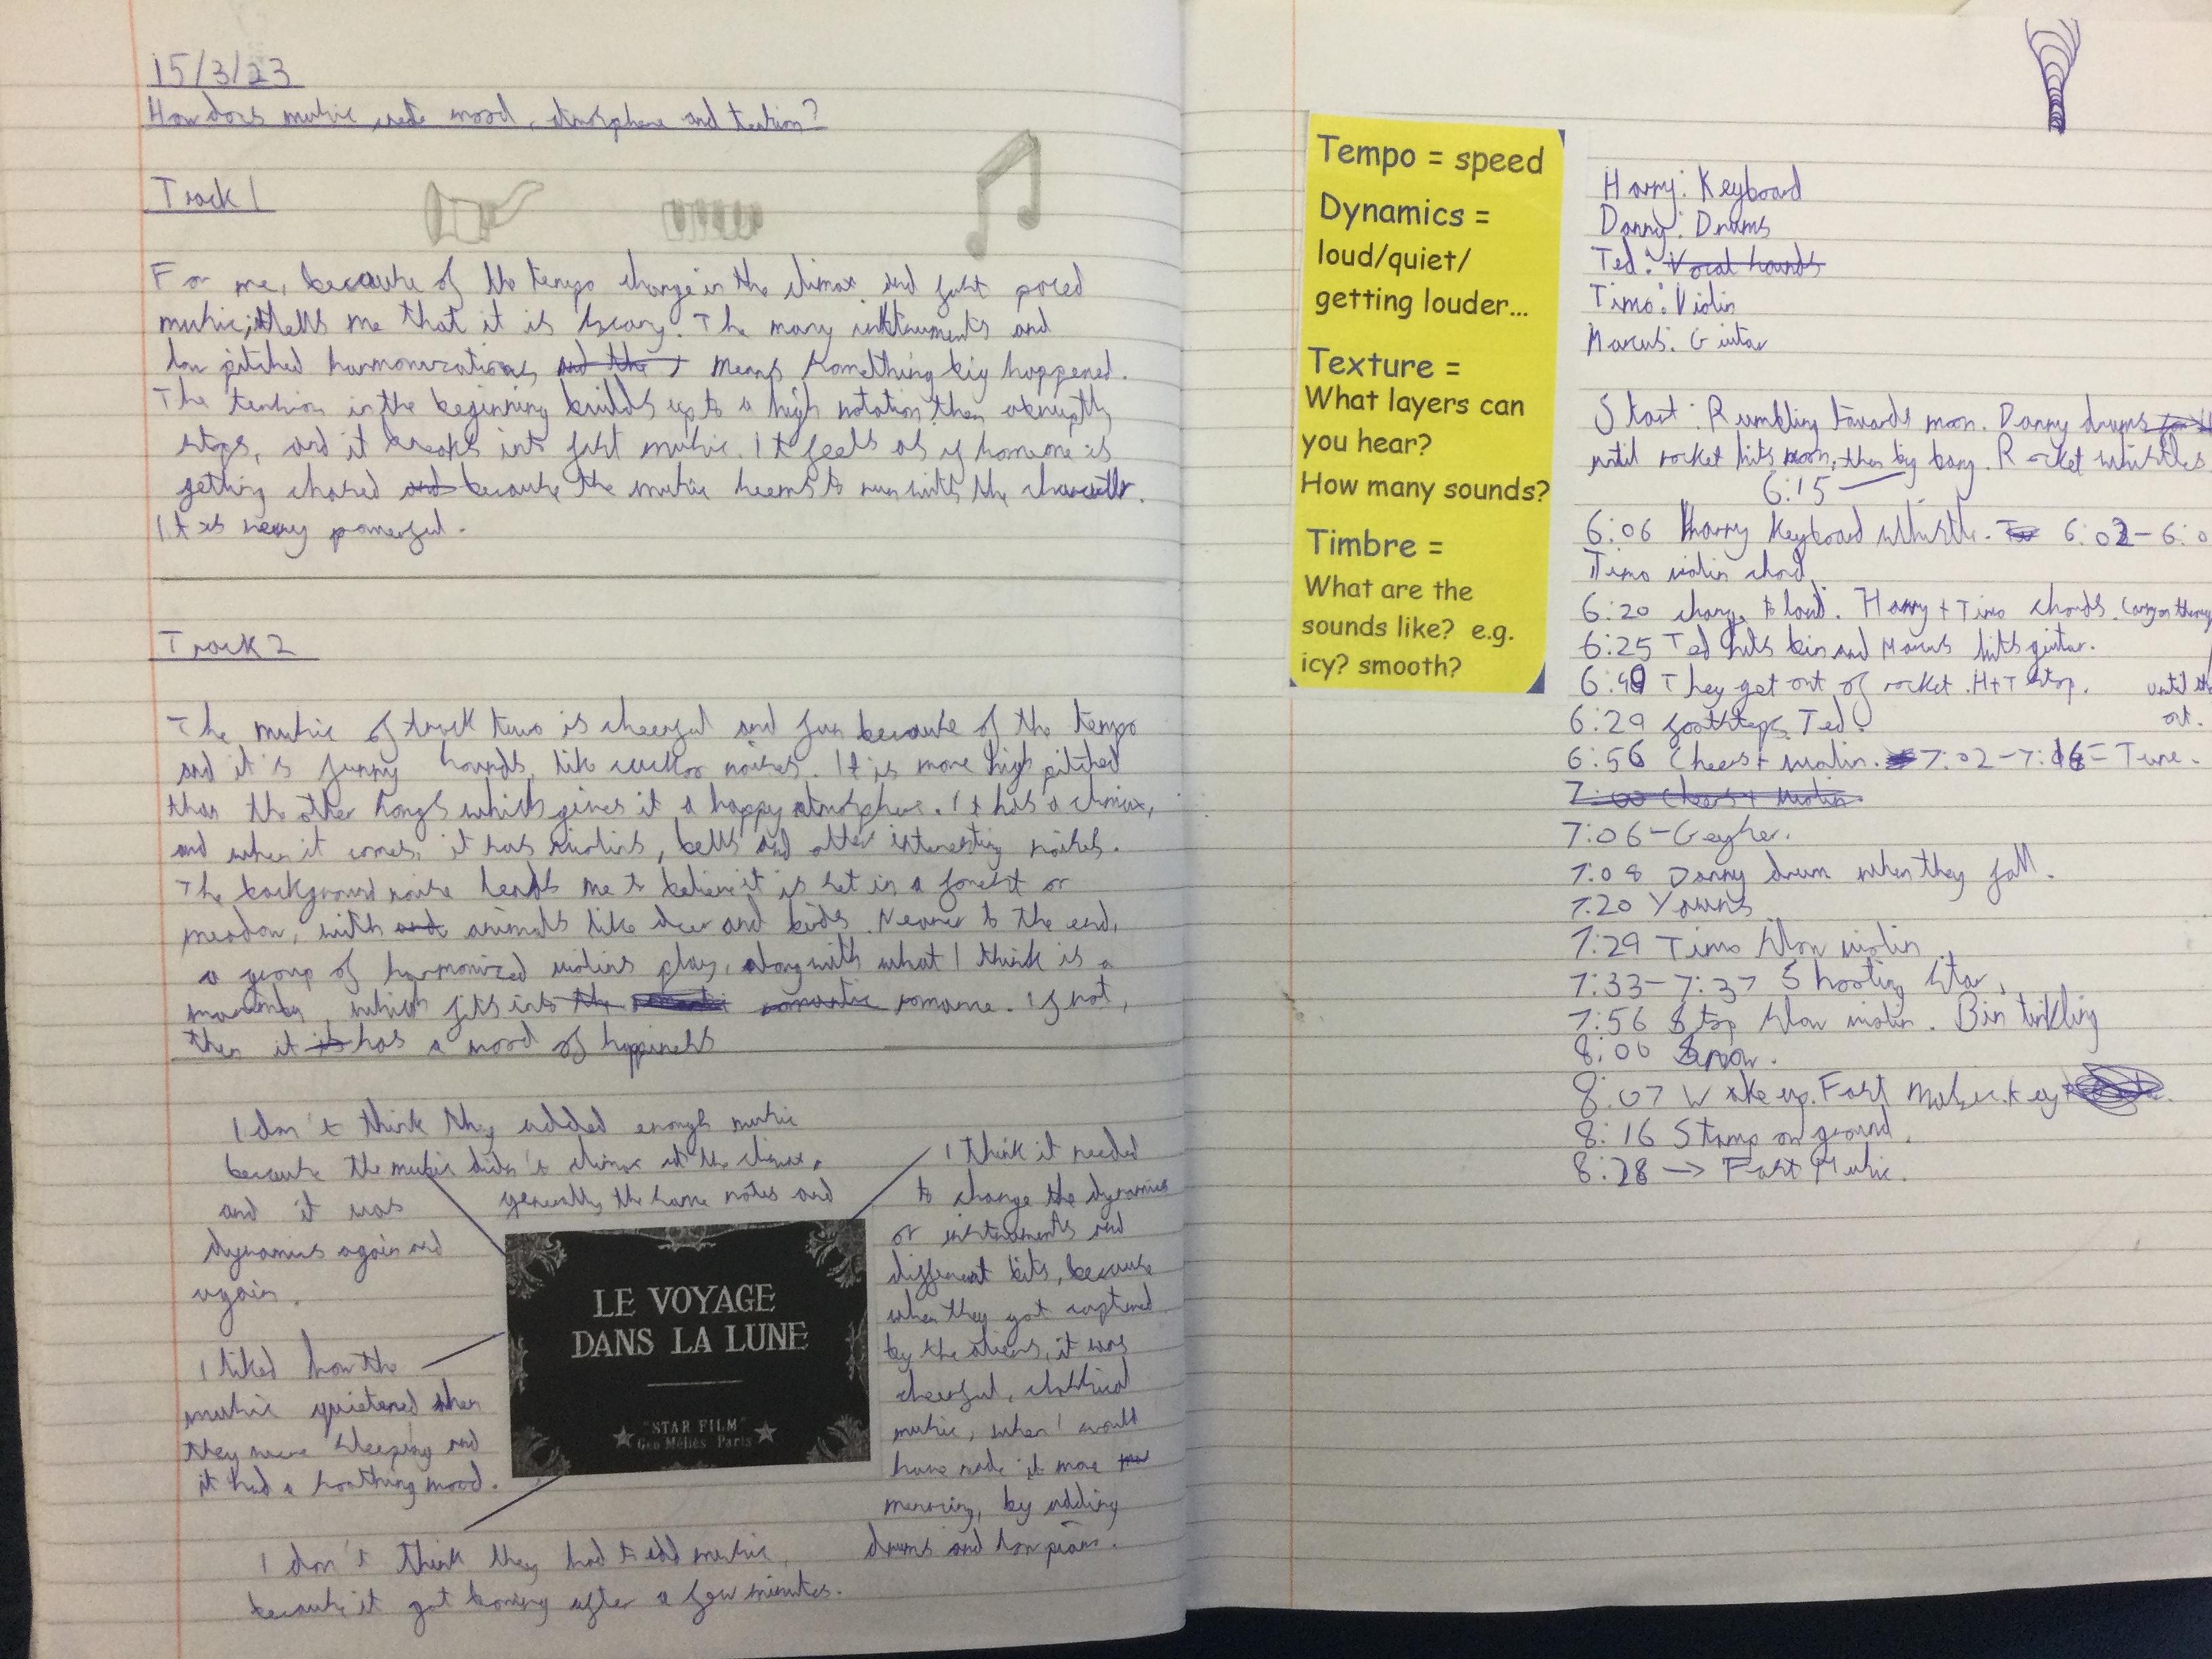 15/3/23
How does music create mood, atmosphere and tension?
Track 1
For me, because of the tempo change in the climax and fast paced
music, it tells me that it is scary. The many instruments and
low pitched harmonizations and the means something big happened.
The tension in the beginning builds up to a high notation then abruptly
stops, and it breaks into fast music. It feels as if someone is
getting chased and because the music seems to run with the character.
It is very powerful.
Track 2
The music of track two is cheerful and fun because of the tempo
and it's funny sounds, like cuckoo noises. It is more high pitched
than the other songs which gives it a happy atmosphere. It has a climax,
and when it comes, it has violins, bells and other interesting noises.
The background noise leads me to believe it is set in a forest or
meadow, with and animals like deer and birds. Nearer to the end,
a group of harmonized violins play, along with what I think is a
which fits into the romantic romance. If not,
then it is has a mood of happiness
I don't think they added enough music
because the music didn't climax at the climax,
and it was generally the same notes and
dynamics again and
again.
I liked how the
music quietened when
they were sleeping and
it had a soothing mood.
I don't think they had to add music,
because it got boring after a few minutes.
I think it needed
to change the dynamics
or instruments and
different bits, because
when they got captured
by the aliens, it was
cheerful, classical
music, when I would
have made it more
menacing, by adding
drums and low piano.
LE VOYAGE
DANS LA LUNE
"STAR FILM"
Geo Méliès Paris
Tempo = speed
Dynamics =
loud/quiet/
getting louder...
Texture =
What layers can
you hear?
How many sounds?
Timbre =
What are the
sounds like? e.g.
icy? smooth?
Harry: Keyboard
Danny: Drums
Ted: Vocal sounds
Timo: Violin
Marcus: Guitar
Start: Rumbling towards moon. Danny drums
until rocket hits moon, then big bang. Rocket whistles
6:15
6:06 Harry Keyboard whistle. 6:02-6:0
Timo violin chord
6:20 change to loud. Harry + Timo chords. Carry on
6:25 Ted hits bin and Marcus hits guitar.
6:40 They get out of rocket. H+T stop. until
out.
6:29 footsteps Ted.
6:56 Cheers + violin. 7:02-7:16= Tune.
7:00 Cheers + violin.
7:06-Geyser.
7:08 Danny drum when they fall.
7.20 Yawns
7:29 Timo slow violin
7:33-7:37 Shooting star,
7:56 Stop slow violin. Bin tinkling
8:00 Snow.
8:07 Wake up. Fast Music. key
8:16 Stamp on ground.
8:28 → Fast Music.